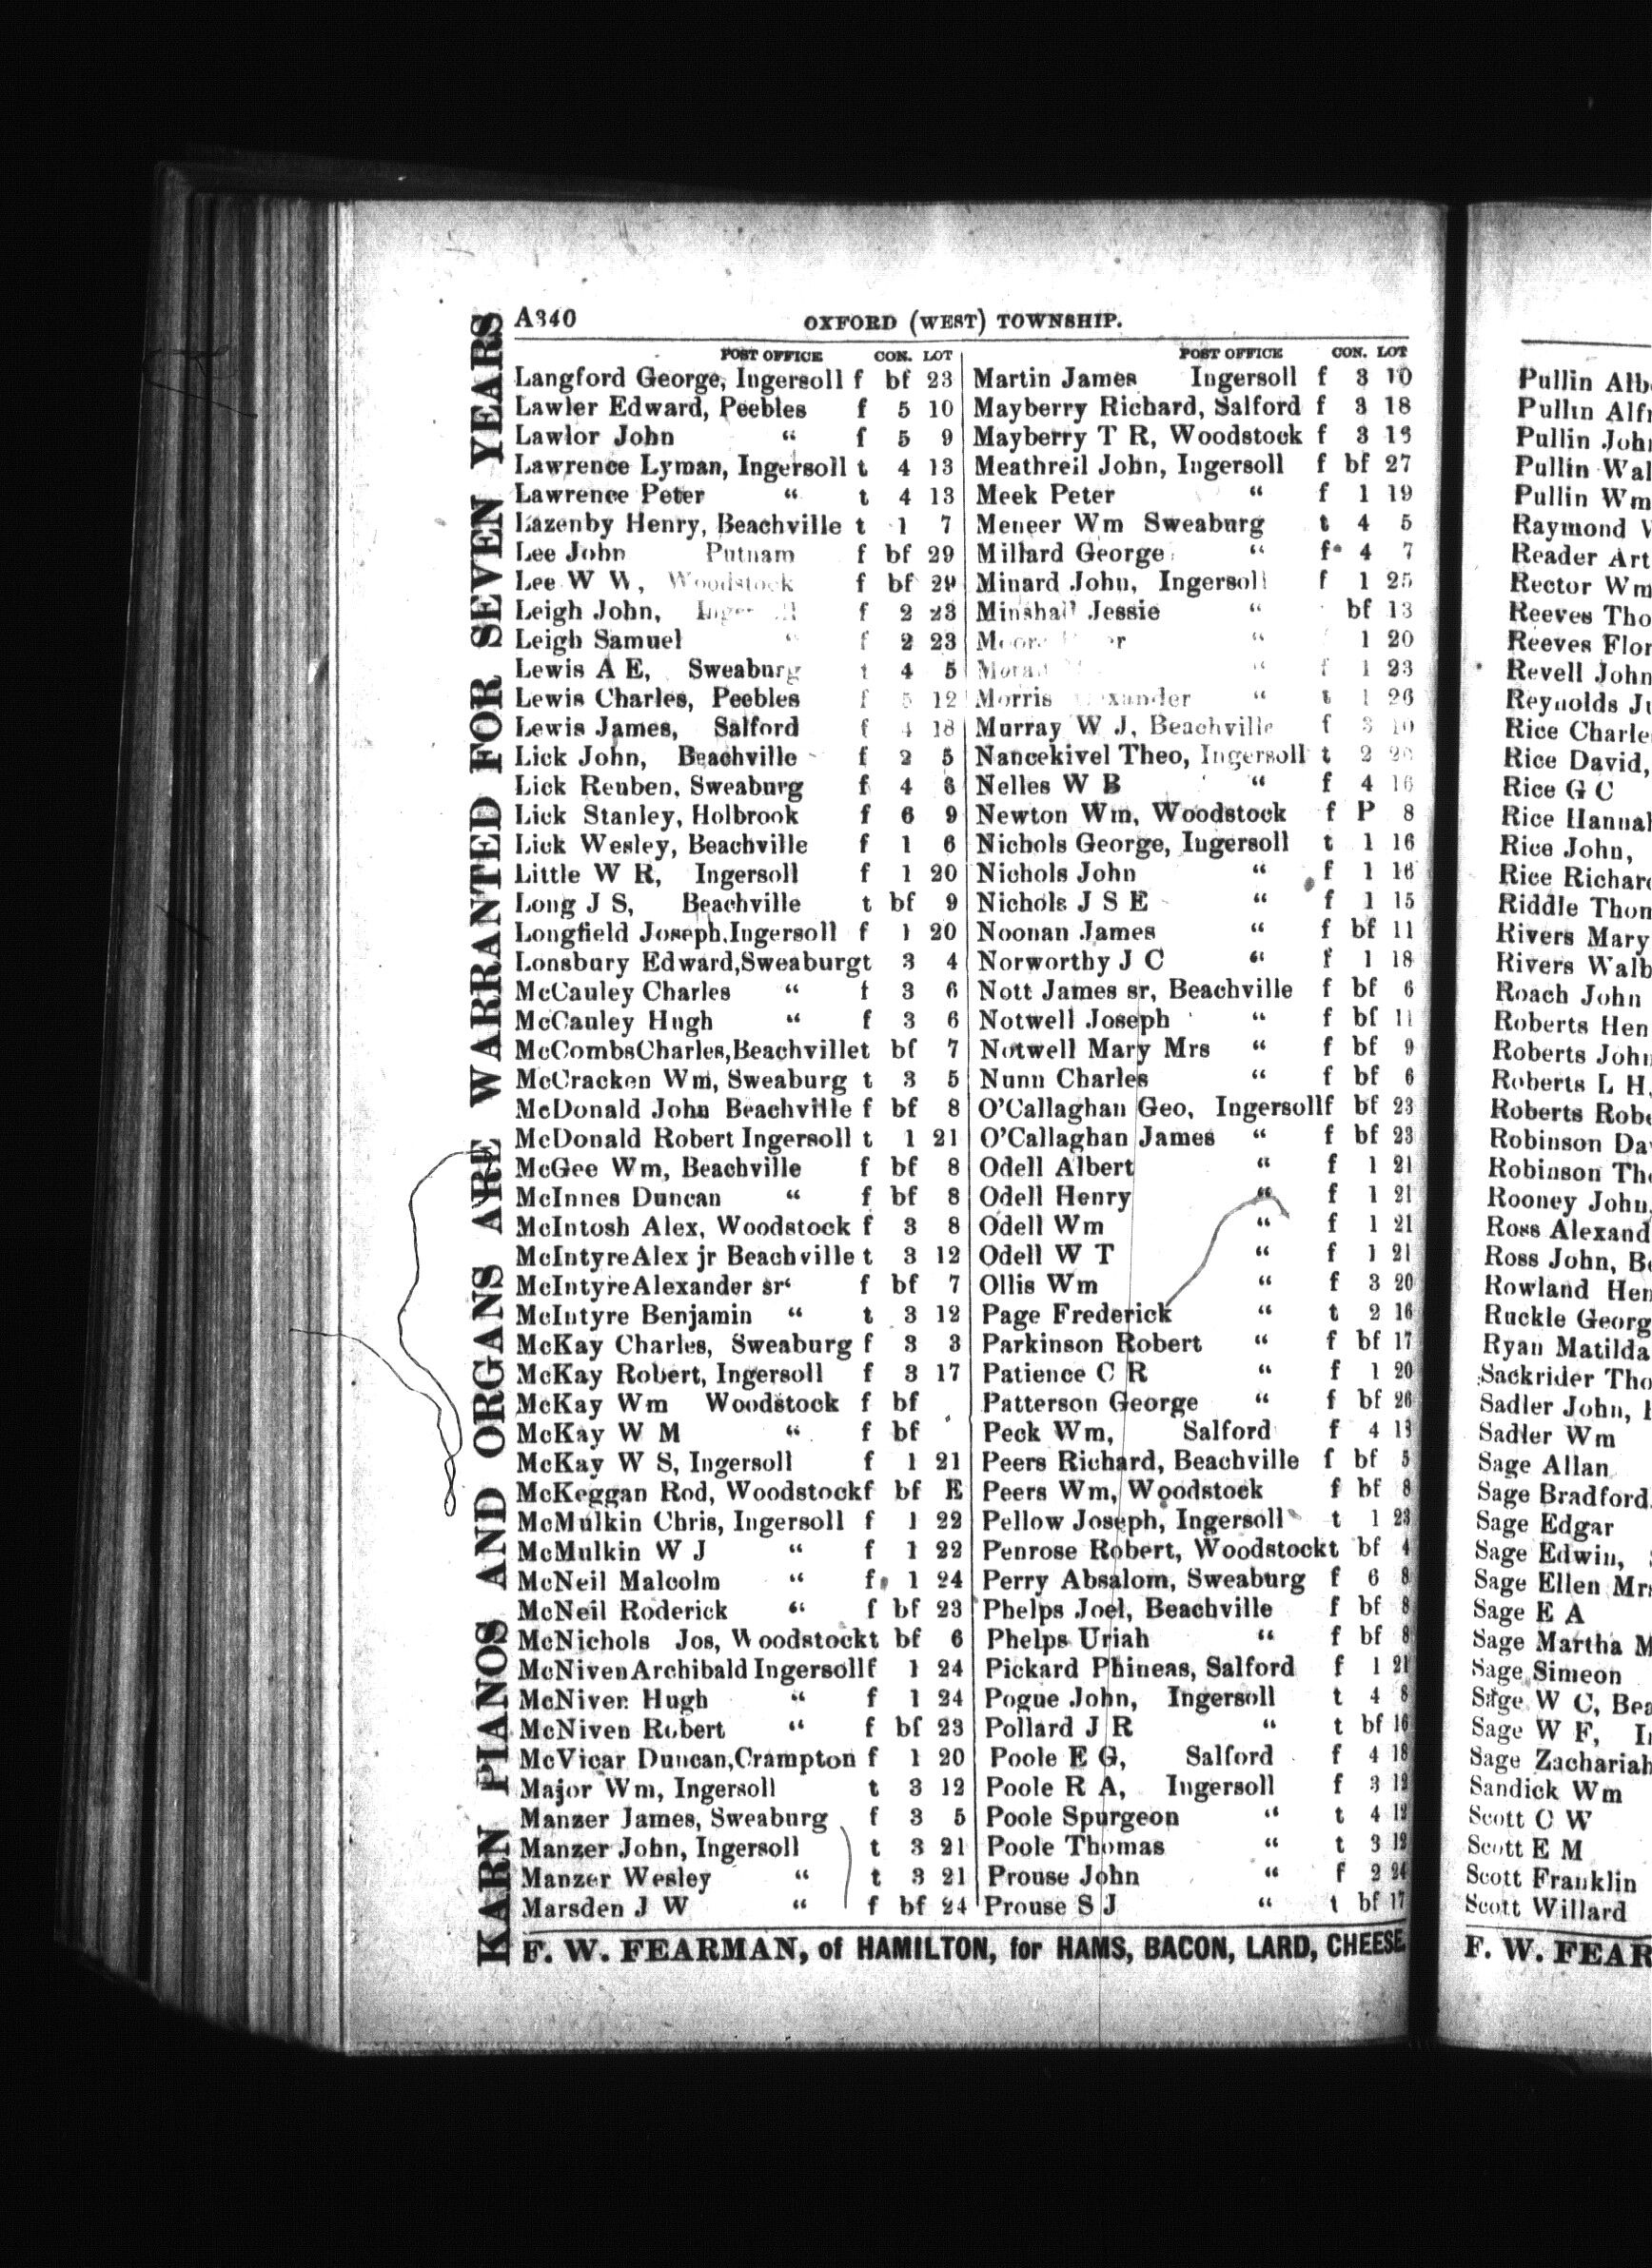 A340 OXFORD (WEST) TOWNSHIP.
KARN PIANOS AND ORGANS ARE WARRANTED FOR SEVEN YEARS
POST OFFICE CON. LOT
Langford George, Ingersoll f bf 23
Lawler Edward, Peebles f 5 10
Lawlor John “ f 5 9
Lawrence Lyman, Ingersoll t 4 13
Lawrence Peter “ t 4 13
Lazenby Henry, Beachville t 1 7
Lee John Putnam f bf 29
Lee W W, Woodstock f bf 29
Leigh John, f 2 23
Leigh Samuel “ f 2 23
Lewis A E, Sweaburg t 4 5
Lewis Charles, Peebles f 5 12
Lewis James, Salford f 4 18
Lick John, Beachville f 2 5
Lick Reuben, Sweaburg f 4
Lick Stanley, Holbrook f 6 9
Lick Wesley, Beachville f 1 6
Little W R, Ingersoll f 1 20
Long J S, Beachville t bf 9
Longfield Joseph, Ingersoll f 1 20
Lonsbury Edward,Sweaburgt 3 4
McCauley Charles “ f 3 6
McCauley Hugh “ f 3 6
McCombsCharles,Beachvillet bf 7
McCracken Wm, Sweaburg t 3 5
McDonald John Beachville f bf 8
McDonald Robert Ingersoll t 1 21
McGee Wm, Beachville f bf 8
McInnes Duncan “ f bf 8
McIntosh Alex, Woodstock f 3 8
McIntyreAlex jr Beachville t 3 12
McIntyreAlexander sr“ f bf 7
McIntyre Benjamin “ t 3 12
McKay Charles, Sweaburg f 3 3
McKay Robert, Ingersoll f 3 17
McKay Wm Woodstock f bf
McKay W M “ f bf
McKay W S, Ingersoll f 1 21
McKeggan Rod, Woodstockf bf E
McMulkin Chris, Ingersoll f 1 22
McMulkin W J “ f 1 22
McNeil Malcolm “ f 1 24
McNeil Roderick “ f bf 23
McNichols Jos, Woodstockt bf 6
McNivenArchibald Ingersollf 1 24
McNiven Hugh “ f 1 24
McNiven Robert “ f bf 23
McVicar Duncan,Crampton f 1 20
Major Wm, Ingersoll t 3 12
Manzer James, Sweaburg f 3 5
Manzer John, Ingersoll t 3 21
Manzer Wesley “ t 3 21
Marsden J W “ f bf 24
POST OFFICE CON. LOT
Martin James Ingersoll f 3 10
Mayberry Richard, Salford f 3 18
Mayberry T R, Woodstock f 3
Meathreil John, Ingersoll f bf 27
Meek Peter “ f 1 19
Meneer Wm Sweaburg t 4 5
Millard George “ f 4 7
Minard John, Ingersoll f 1 25
Minshall Jessie “ bf 13
“ 1 20
“ f 1 23
Morris “ t 1 26
Murray W J, Beachville f 3 10
Nancekivel Theo, Ingersoll t 2
Nelles W B “ f 4 16
Newton Wm, Woodstock f P 8
Nichols George, Ingersoll t 1 16
Nichols John “ f 1 16
Nichols J S E “ f 1 15
Noonan James “ f bf 11
Norworthy J C “ f 1 18
Nott James sr, Beachville f bf 6
Notwell Joseph “ f bf 11
Notwell Mary Mrs “ f bf 9
Nunn Charles “ f bf 6
O'Callaghan Geo, Ingersollf bf 23
O'Callaghan James “ f bf 23
Odell Albert “ f 1 21
Odell Henry “ f 1 21
Odell Wm “ f 1 21
Odell W T “ f 1 21
Ollis Wm “ f 3 20
Page Frederick “ t 2 16
Parkinson Robert “ f bf 17
Patience C R “ f 1 20
Patterson George “ f bf 26
Peck Wm, Salford f 4 13
Peers Richard, Beachville f bf 5
Peers Wm, Woodstock f bf 8
Pellow Joseph, Ingersoll t 1 23
Penrose Robert, Woodstockt bf 4
Perry Absalom, Sweaburg f 6 8
Phelps Joel, Beachville f bf 8
Phelps Uriah “ f bf 8
Pickard Phineas, Salford f 1 21
Pogue John, Ingersoll t 4 8
Pollard J R “ t bf 16
Poole E G, Salford f 4 18
Poole R A, Ingersoll f 3 12
Poole Spurgeon “ t 4 12
Poole Thomas “ t 3 12
Prouse John “ f 2 24
Prouse S J “ t bf 17
F. W. FEARMAN, of HAMILTON, for HAMS, BACON, LARD, CHEESE
Pullin
Pullin
Pullin
Pullin
Pullin Wm
Raymond
Reader
Rector Wm
Reeves
Reeves
Revell John
Reynolds
Rice
Rice David,
Rice G C
Rice
Rice John,
Rice
Riddle
Rivers Mary
Rivers
Roach John
Roberts
Roberts
Roberts L H,
Roberts
Robinson
Robinson
Rooney John,
Ross
Ross John,
Rowland
Ruckle
Ryan Matilda
Sackrider
Sadler John,
Sadler Wm
Sage Allan
Sage Bradford,
Sage Edgar
Sage Edwin,
Sage Ellen
Sage E A
Sage Martha
Sage Simeon
Sage W C,
Sage W F,
Sage Zachariah
Sandick Wm
Scott C W
Scott E M
Scott Franklin
Scott Willard
F. W.